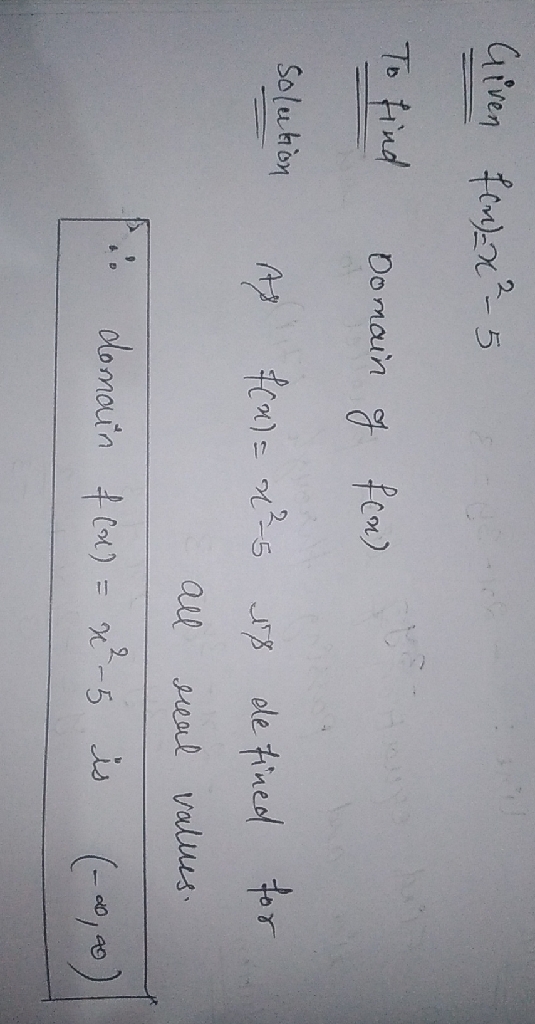 Given f(x)=x²-5
To find Domain of f(x)
Solution As f(x)=x²-5 is defined for
all real values.
∴ domain f(x)=x²-5 is (-∞,∞)